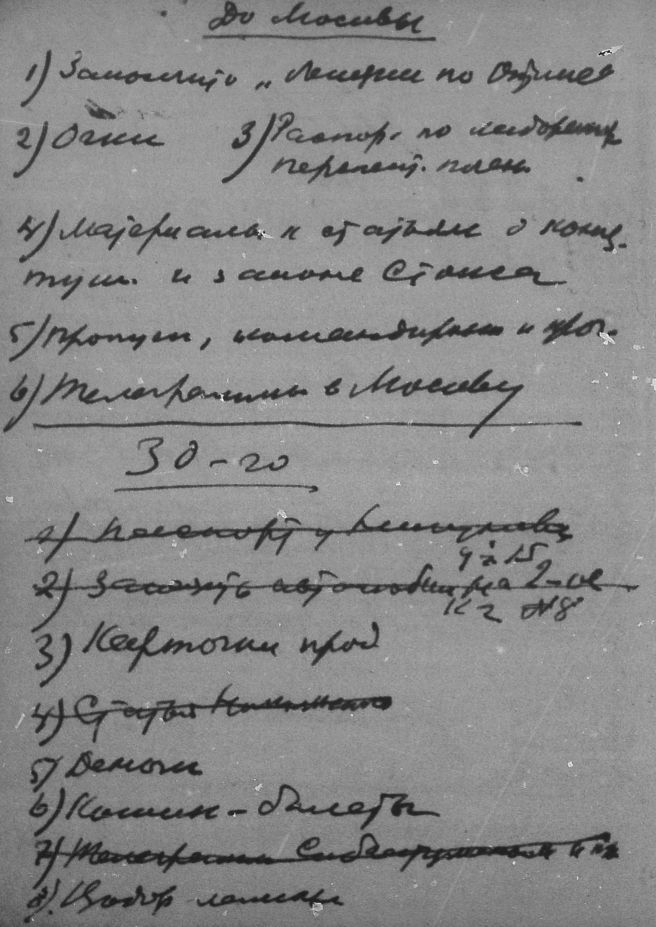 До Москвы
1) Закончить „Лекции по Оптике"
2) Очки 3) Распор. по лаборатор
перепеч. плен.
4) Материалы к статьям о конц.
туш. и законе Стокса
5) Пропуск, командировки и проч.
6) Телеграммы в Москву
30-го
1) Паспорт у
2) Заказать автомобиль на 2-ое
3) Карточки прод
4) Статья
5) Деньги
6) билеты
7) Телеграммы и
8)